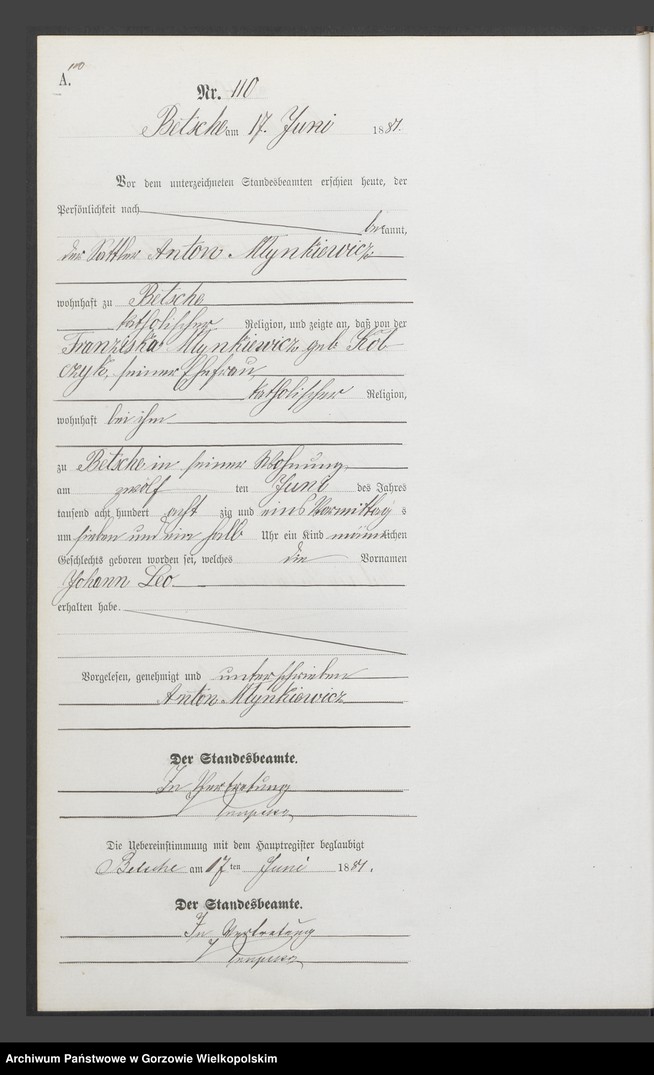 110
A.
Nr. 110
Betsche am 17. Juni 1881.
Vor dem unterzeichneten Standesbeamten erschien heute, der
Persönlichkeit nach
bekannt,
der Sattler Anton Mlynkiewicz
wohnhaft zu Betsche
katholischer Religion, und zeigte an, daß von der
Franziska Mlynkiewicz geb. Kol-
czyk, seiner Ehefrau,
katholischer Religion,
wohnhaft bei ihm
zu Betsche in seiner Wohnung,
am zwölf ten Juni des Jahres
tausend acht hundert acht zig und eins Vormittag s
um sieben und ein halb Uhr ein Kind männlichen
Geschlechts geboren worden sei, welches die Vornamen
Johann Leo
erhalten habe.
Vorgelesen, genehmigt und unterschrieben
Anton Mlynkiewicz
Der Standesbeamte.
In Vertretung
Die Uebereinstimmung mit dem Hauptregister beglaubigt
Betsche am 17 ten Juni 1881.
Der Standesbeamte.
In Vertretung
Archiwum Państwowe w Gorzowie Wielkopolskim